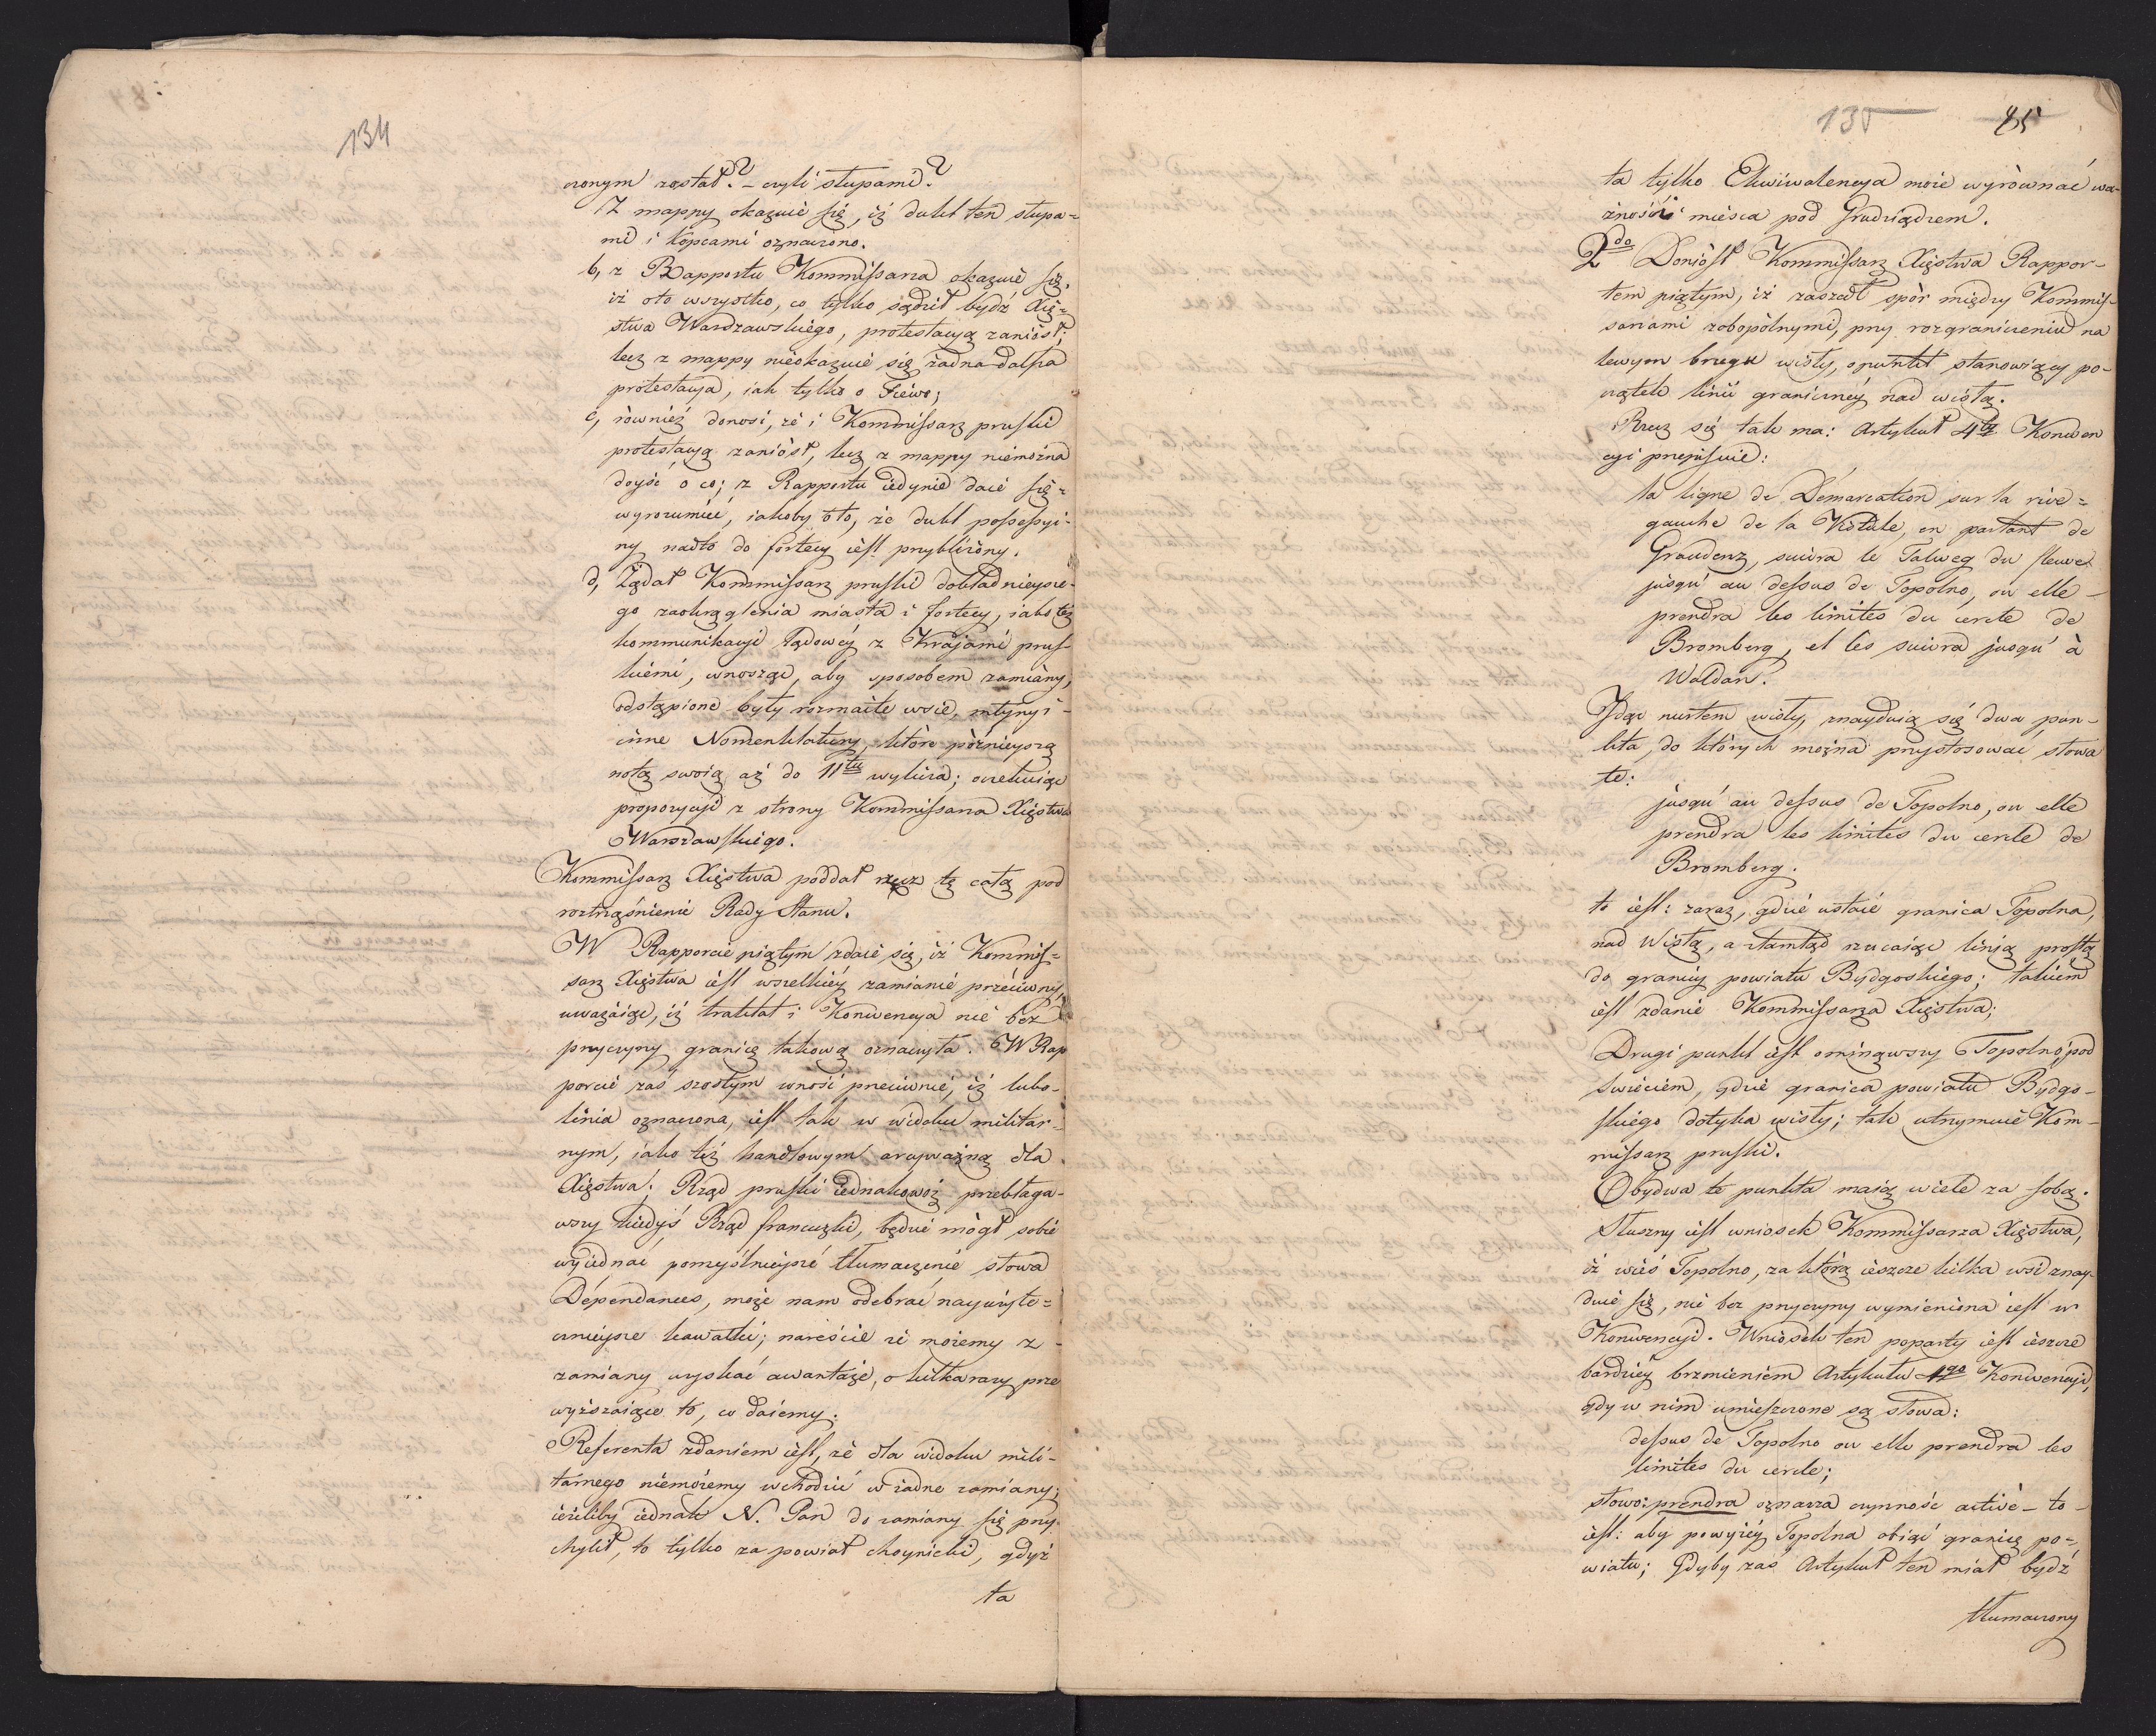 134
czonym został? - czyli słupami?
Z mappy okazuie się, iż dukt ten słupa=
mi i kopcami oznaczono.
b, z Rapportu Kommissarza okazuie się,
iż oto wszystko, co tylko sądził bydź Xię=
stwa Warszawskiego, protestacyą zaniósł;
lecz z mappy nieokazuie się żadna dalsza
protestacya, iak tylko o
c, również donosi, że i Kommissarz pruski
protestacyą zaniósł, lecz z mappy niemożna
doyść o co; z Rapportu iedynie daie się=
wyrozumieć, iakoby oto, że dukt possessyi-
ny nadto do fortecy iest przybliżony.
d, Żądał Kommissarz pruski dokładnieysze-
go zaokrąglenia miasta i fortecy, iako też
kommunikacyi lądowéy z Kraiami prus-
kiemi, wnosząc, aby sposobem zamiany,
odstąpione były rozmaite wsie, młyny i-
inne Nomenklatury, które późnieyszą
notą swoią aż do 11tu wylicza; oczekuiąc
propozycyi z strony Kommissarza Xięstwa
Warszawskiego.
Kommissarz Xięstwa poddał rzecz tę całą pod
roztrząśnienie Rady Stanu.
W Rapporcie piątym zdaie się, iż Kommis=
sarz Xięstwa iest wszelkiéy zamianie przeciwny,
uważaiąc, iż traktat i Konwencya nie bez
przyczyny granicę takową oznaczyła. W Rap
porcie zaś szóstym wnosi przeciwnie, iż lubo-
linia oznaczona, iest tak w widoku militar-
nym, iako też handlowym arcyważną dla
Xięstwa; Rząd pruski iednakowoż przebłaga-
wszy kiedyś Rząd francuzki, będzie mógł sobie
wyiednać pomyślnieysze tłumaczenie słowa
Dépendances, może nam odebrać nayużyte=
cznieysze kawałki; nareście że możemy z-
zamiany uzyskać awantaże, o kilka razy prze
wyższaiące to, co daiemy.
Referenta zdaniem iest, że dla widoku mili-
tarnego niemożemy wchodzić w żadne zamiany;
ieżeliby iednak N. Pan do zamiany się przy-
chylił, to tylko za powiat choynicki, gdyż
ta
135 85
ta tylko Ekwiwalencya może wyrównać wa-
żności mieysca pod Grudziądzem.
2do Doniósł Kommissarz Xięstwa Rappor-
tem piątym, iż zaszedł spór między Kommis-
sarzami zobopólnymi, przy rozgraniczeniu na
lewym brzegu wisły, o punkt stanowiący po-
czątek linii granicznéy nad wisłą.
Rzecz się tak ma: Artykuł 4ty Konwen
cyi przepisuie:
la ligne de Démarcation sur la rive=
gauche de la Vistule, en partant de
Graudenz, suivra le Talweg du fleuve
jusqu' au dessus de Topolno, ou elle-
prendra les limites du cercle de
Bromberg, et les suivra jusqu' à
Waldau.
Idąc nurtem wisły, znayduią się dwa pun-
kta, do których można przystosować słowa
te:
jusqu' au dessus de Topolno, ou elle
prendra les limites du cercle de
Bromberg.
to iest: zaraz, gdzie ustaie granica Topolna,
nad Wisłą, a ztamtąd rzucaiąc linią prostą
do granicy powiatu Bydgoskiego; takiem
iest zdanie Kommissarza Xięstwa;
Drugi punkt iest ominąwszy Topolno, pod
Swieciem, gdzie granica powiatu Bydgo-
skiego dotyka wisły; tak utrzymuie Kom-
missarz pruski.
Obydwa te punkta maią wiele za sobą.
Słuszny iest wniosek Kommissarza Xięstwa,
iż wieś Topolno, za którą ieszcze kilka wsi znay-
duie się, nie bez przyczyny wymieniona iest w
Konwencyi. Wniosek ten poparty iest ieszcze
bardziéy brzmieniem Artykułu 4go Konwencyi,
gdy w nim umieszczone są słowa:
dessus de Topolno ou elle prendra les
limites du cercle;
słowo: prendra oznacza czynność activè - to-
iest: aby powyżéy Topolna obiąć granicę po=
wiatu; Gdyby zaś Artykuł ten miał bydź
tłumaczony